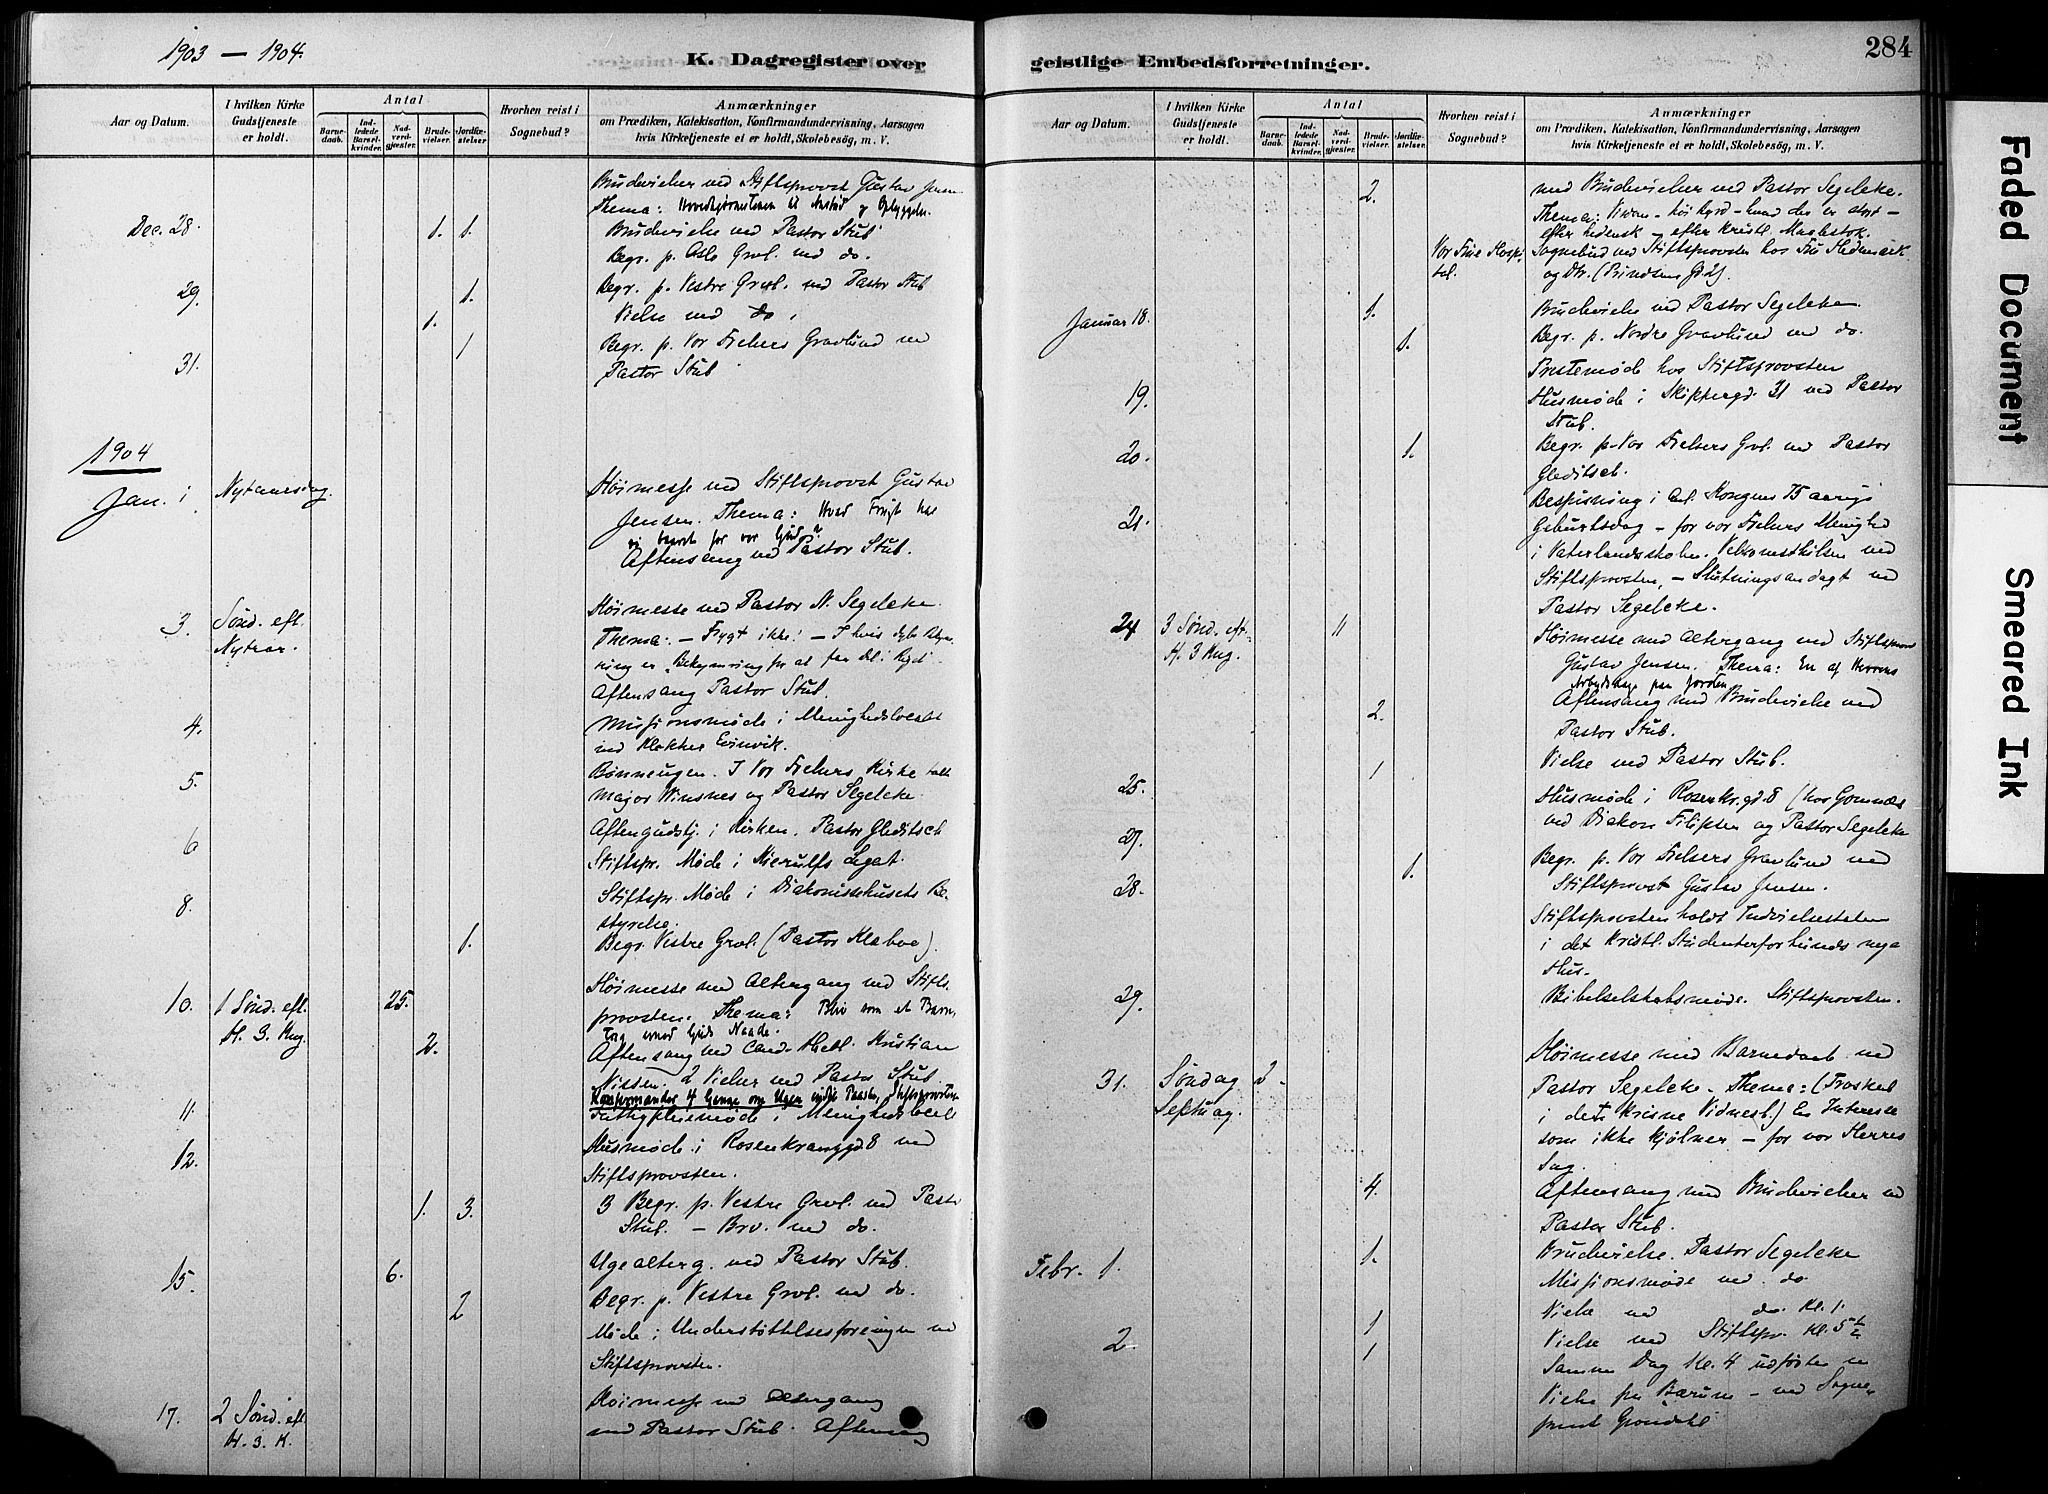 1903 — 1904.
K. Dagregister over
Aar og Datum.
I hvilken Kirke Gudstjeneste er holdt.
Antal
Barnedaab.
Indledede Barselkvinder.
Nadverdgjæster.
Brudevielser.
Jordfæstelser
Hvorhen reist i Sognebud?
Anmærkninger
om Prædiken, Katekisation, Konfirmandundervisning, Aarsagen
hvis Kirketjeneste et er holdt, Skolebesög, m. V.
Brudevielser ved Stiftsprovst Gustav Jensen
Thema:
Dec. 28. 1. 1. Brudevielse ved Pastor Stub
Begr. p. Oslo Gravl. ved do.
29. 1. Begr. p. Vestre Gravl. ved Pastor Stub
1. Vielse ved do.
31. 1 Begr. p. Vor Frelsers Gravlund ved
Pastor Stub
1904
Jan. 1 Nytaarsdag. Høimesse ved Stiftsprovst Gustav
Jensen. Thema: Hvad Frugt har
vi baaret for vor Gud?
Aftensang ved Pastor Stub.
3. Sønd. eft. Høimesse ved Pastor N. Segelcke.
Nytaar. Thema: — Frygt ikke! — I hvis
Aftensang Pastor Stub.
4. Missionsmøde i Menighedslocalet
ved Klokker Evinvik.
5. Bønneugen. I Vor Frelsers Kirke talt
Major Winsnes og Pastor Segelcke.
6 Aftengudstj. i Kirken. Pastor Gleditsch
Stiftspr. Møde i Kierulfs Legat.
8. Stiftspr. Møde i Diakonissehusets Be-
styrelse.
1. Begr. Vestre Gravl. (Pastor Klæboe).
10. 1 Sønd. eft. 25. Høimesse med Altergang ved Stifts-
H. 3. Kng. provsten. Thema: Bliv som et Barn,
Tag imod Guds Naade.
2. Aftensang ved Cand. theol. Kristian
Nissen. 2 Vielser ved Pastor Stub.
Konfirmander 4 Gange om Ugen indtil Paaske, Stiftsprovsten
11. Fattigpleiemøde i Menighedslocalet
12. Husmøde i Rosenkrantzgd 8 ved
Stiftsprovsten.
1. 3. 3 Begr. p. Vestre Gravl. ved Pastor
Stub. — Brv. ved do.
15. 6. Ugealterg. ved Pastor Stub.
2 Begr. p. Vestre Gravl. ved do.
Møde i Understøttelsesforeningen ved
Stiftsprovsten.
17. 2 Sønd. eft. Høimesse med Altergang
H. 3. K. ved Pastor Stub. Aftensang
geistlige Embedsforretninger.
284
Aar og Datum.
I hvilken Kirke Gudstjeneste er holdt.
Antal
Barnedaab.
Indledede Barselkvinder.
Nadverdgjæster.
Brudevielser.
Jordfæstelser.
Hvorhen reist i Sognebud?
Anmærkninger
om Prædiken, Katekisation, Konfirmandundervisning, Aarsagen
hvis Kirketjeneste et er holdt, Skolebesög, m. V.
2. med Brudevielser ved Pastor Segelcke.
Thema: — hvad der er stort —
efter hedensk — efter kristl. Maalestok.
Vor Frue Hospi- Sognebud ved Stiftsprovsten hos Fru Hedemark
tal. og Dtr.
Januar 18. 1. Brudevielse ved Pastor Segelcke.
1. Begr. p. Nordre Gravlund ved do.
Prestemøde hos Stiftsprovsten
19. Husmøde i Skippergd. 31 ved Pastor
Stub.
20. 1. Begr. p. Vor Frelsers Gravl. ved Pastor
Gleditsch.
21. Bespisning i Anl. Kongens 75 aarige
Geburtsdag — for vor Frelsers Menighed
i Vaterlandsskolen. Velkomsthilsen ved
Stiftsprovsten, — Slutningsandagt ved
Pastor Segelcke.
24 3 Sønd. eft. 11 Høimesse med Altergang ved Stiftsprovst
H. 3 Kng. Gustav Jensen. Thema: En af Herrens
Arbeidsdage paa Jorden
2. Aftensang med Brudevielse ved
Pastor Stub.
25. 1 Vielse ved Pastor Stub.
Husmøde i Rosenkr.gd 8 (hos Gomnæs
27. ved Diakon Filipsen og Pastor Segelcke
28. 1. Begr. p. Vor Frelsers Gravlund ved
Stiftsprovst Gustav Jensen.
Stiftsprovsten holdt Indvielsestalen
i det kristl. Studenterforbunds nye
Hus.
29. Bibelselskabsmøde. Stiftsprovsten.
31. Søndag 2. Høimesse med Barnedaab ved
Septuag. Pastor Segelcke. Thema: (Troskab
i det kristne Vidnesb.) En Interesse
som ikke kjølner — for vor Herres
Sag.
4. Aftensang med Brudevielser ved
Pastor Stub.
Febr. 1. 1. Brudevielse. Pastor Segelcke
Missionsmøde ved do
1 Vielse ved do. Kl. 1.
2. 1 Vielse ved Stiftspr. Kl. 5 1/2
Samme Dag Kl. 4 udførtes en
Vielse fra Bærum — ved Sogne-
prest Grøndahl
Faded Document
Smeared Ink